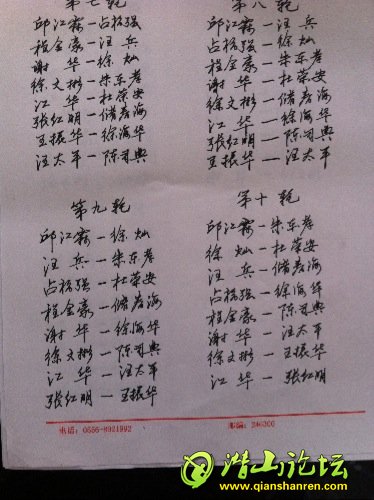 第七轮
邱江霖—占振强
程金豪—汪兵
谢华—徐灿
徐文彬—朱东彦
江华—杜荣安
张红明—储彦海
王振华—徐海华
汪太平—陈习典
第八轮
邱江霖—汪兵
占振强—徐灿
程金豪—朱东彦
谢华—杜荣安
徐文彬—储彦海
江华—徐海华
张红明—陈习典
王振华—汪太平
第九轮
邱江霖—徐灿
汪兵—朱东彦
占振强—杜荣安
程金豪—储彦海
谢华—徐海华
徐文彬—陈习典
江华—汪太平
张红明—王振华
第十轮
邱江霖—朱东彦
徐灿—杜荣安
汪兵—储彦海
占振强—徐海华
程金豪—陈习典
谢华—汪太平
徐文彬—王振华
江华—张红明
电话: 0556-8921992
邮编: 246300
潜山论坛
www.qianshanren.com